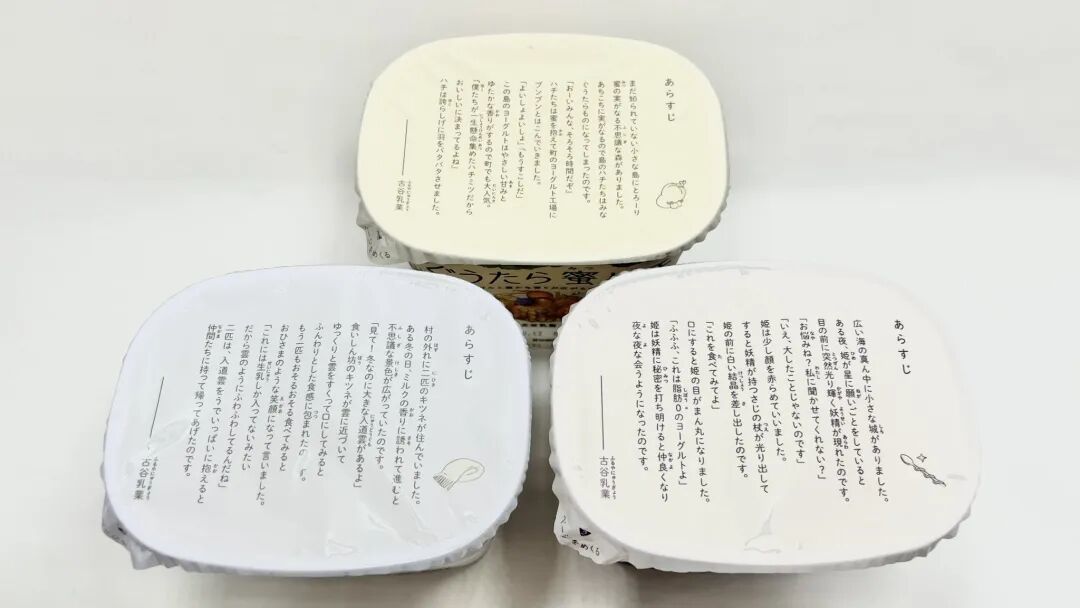 あらすじ
まだ知られていない小さな島にとろーり
蜜の実がなる不思議な森がありました。
あちこちに実がなるので島のハチたちはみな
ぐうたらものになってしまったのです。
「おーいみんな、そろそろ時間だぞ」
ハチたちは蜜を抱えて町のヨーグルト工場に
ブンブンとはこんでいきました。
「よいしょよいしょ」「もうすこしだ」
この島のヨーグルトはやさしい甘みと
ゆたかな香りがするので町でも大人気。
「僕たちが一生懸命集めたハチミツだから
おいしいに決まってるよね」
ハチは誇らしげに羽をバタバタさせました。
古谷乳業
めくる
ぐうたら蜜
あらすじ
村の外れに二匹のキツネが住んでいました。
ある冬の日、ミルクの香りに誘われて進むと
不思議な景色が広がっていたのです。
「見て！冬なのに大きな入道雲があるよ」
食いしん坊のキツネが雲に近づいて
ゆっくりと雲をすくって口にしてみると
ふんわりとした食感に包まれたの
もう一匹もおそるおそる食べてみると
おひさまのような笑顔になって言いました。
「これには生乳しか入ってないみたい
だから雲のようにふわふわしてるんだね」
二匹は、入道雲をうでいっぱいに抱えると
仲間たちに持って帰ってあげたのです。
ふるやにゅうぎょう
古谷乳業
あらすじ
広い海の真ん中に小さな城がありました。
ある夜、姫が星に願いごとをしていると
目の前に突然光り輝く妖精が現れたのです。
「お悩みね？私に聞かせてくれない？」
「いえ、大したことじゃないのです」
姫は少し顔を赤らめていいました。
すると妖精が持つさじの杖が光り出して
姫の前に白い結晶を差し出したのです。
「これを食べてみてよ」
口にすると姫の目がまん丸になりました。
「ふふふ、これは脂肪0のヨーグルトよ」
姫は妖精に秘密を打ち明けると仲良くなり
夜な夜な会うようになったのです。
ふるやにゅうぎょう
古谷乳業
めくる